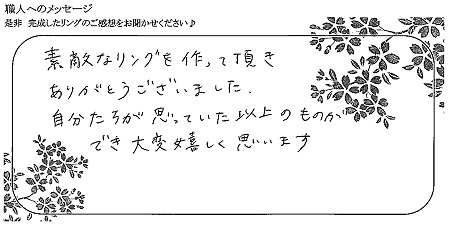 職人へのメッセージ
是非 完成したリングのご感想をお聞かせください♪
素敵なリングを作って頂き
ありがとうございました.
自分たちが思っていた以上のものが
でき大変嬉しく思います